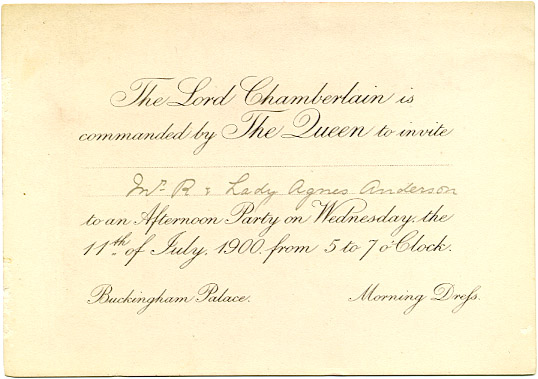 The Lord Chamberlain is
commanded by The Queen to invite
Mr. R & Lady Agnes Anderson
to an Afternoon Party on Wednesday, the
11th of July, 1900. from 5 to 7 o'Clock.
Buckingham Palace. Morning Dreſs.